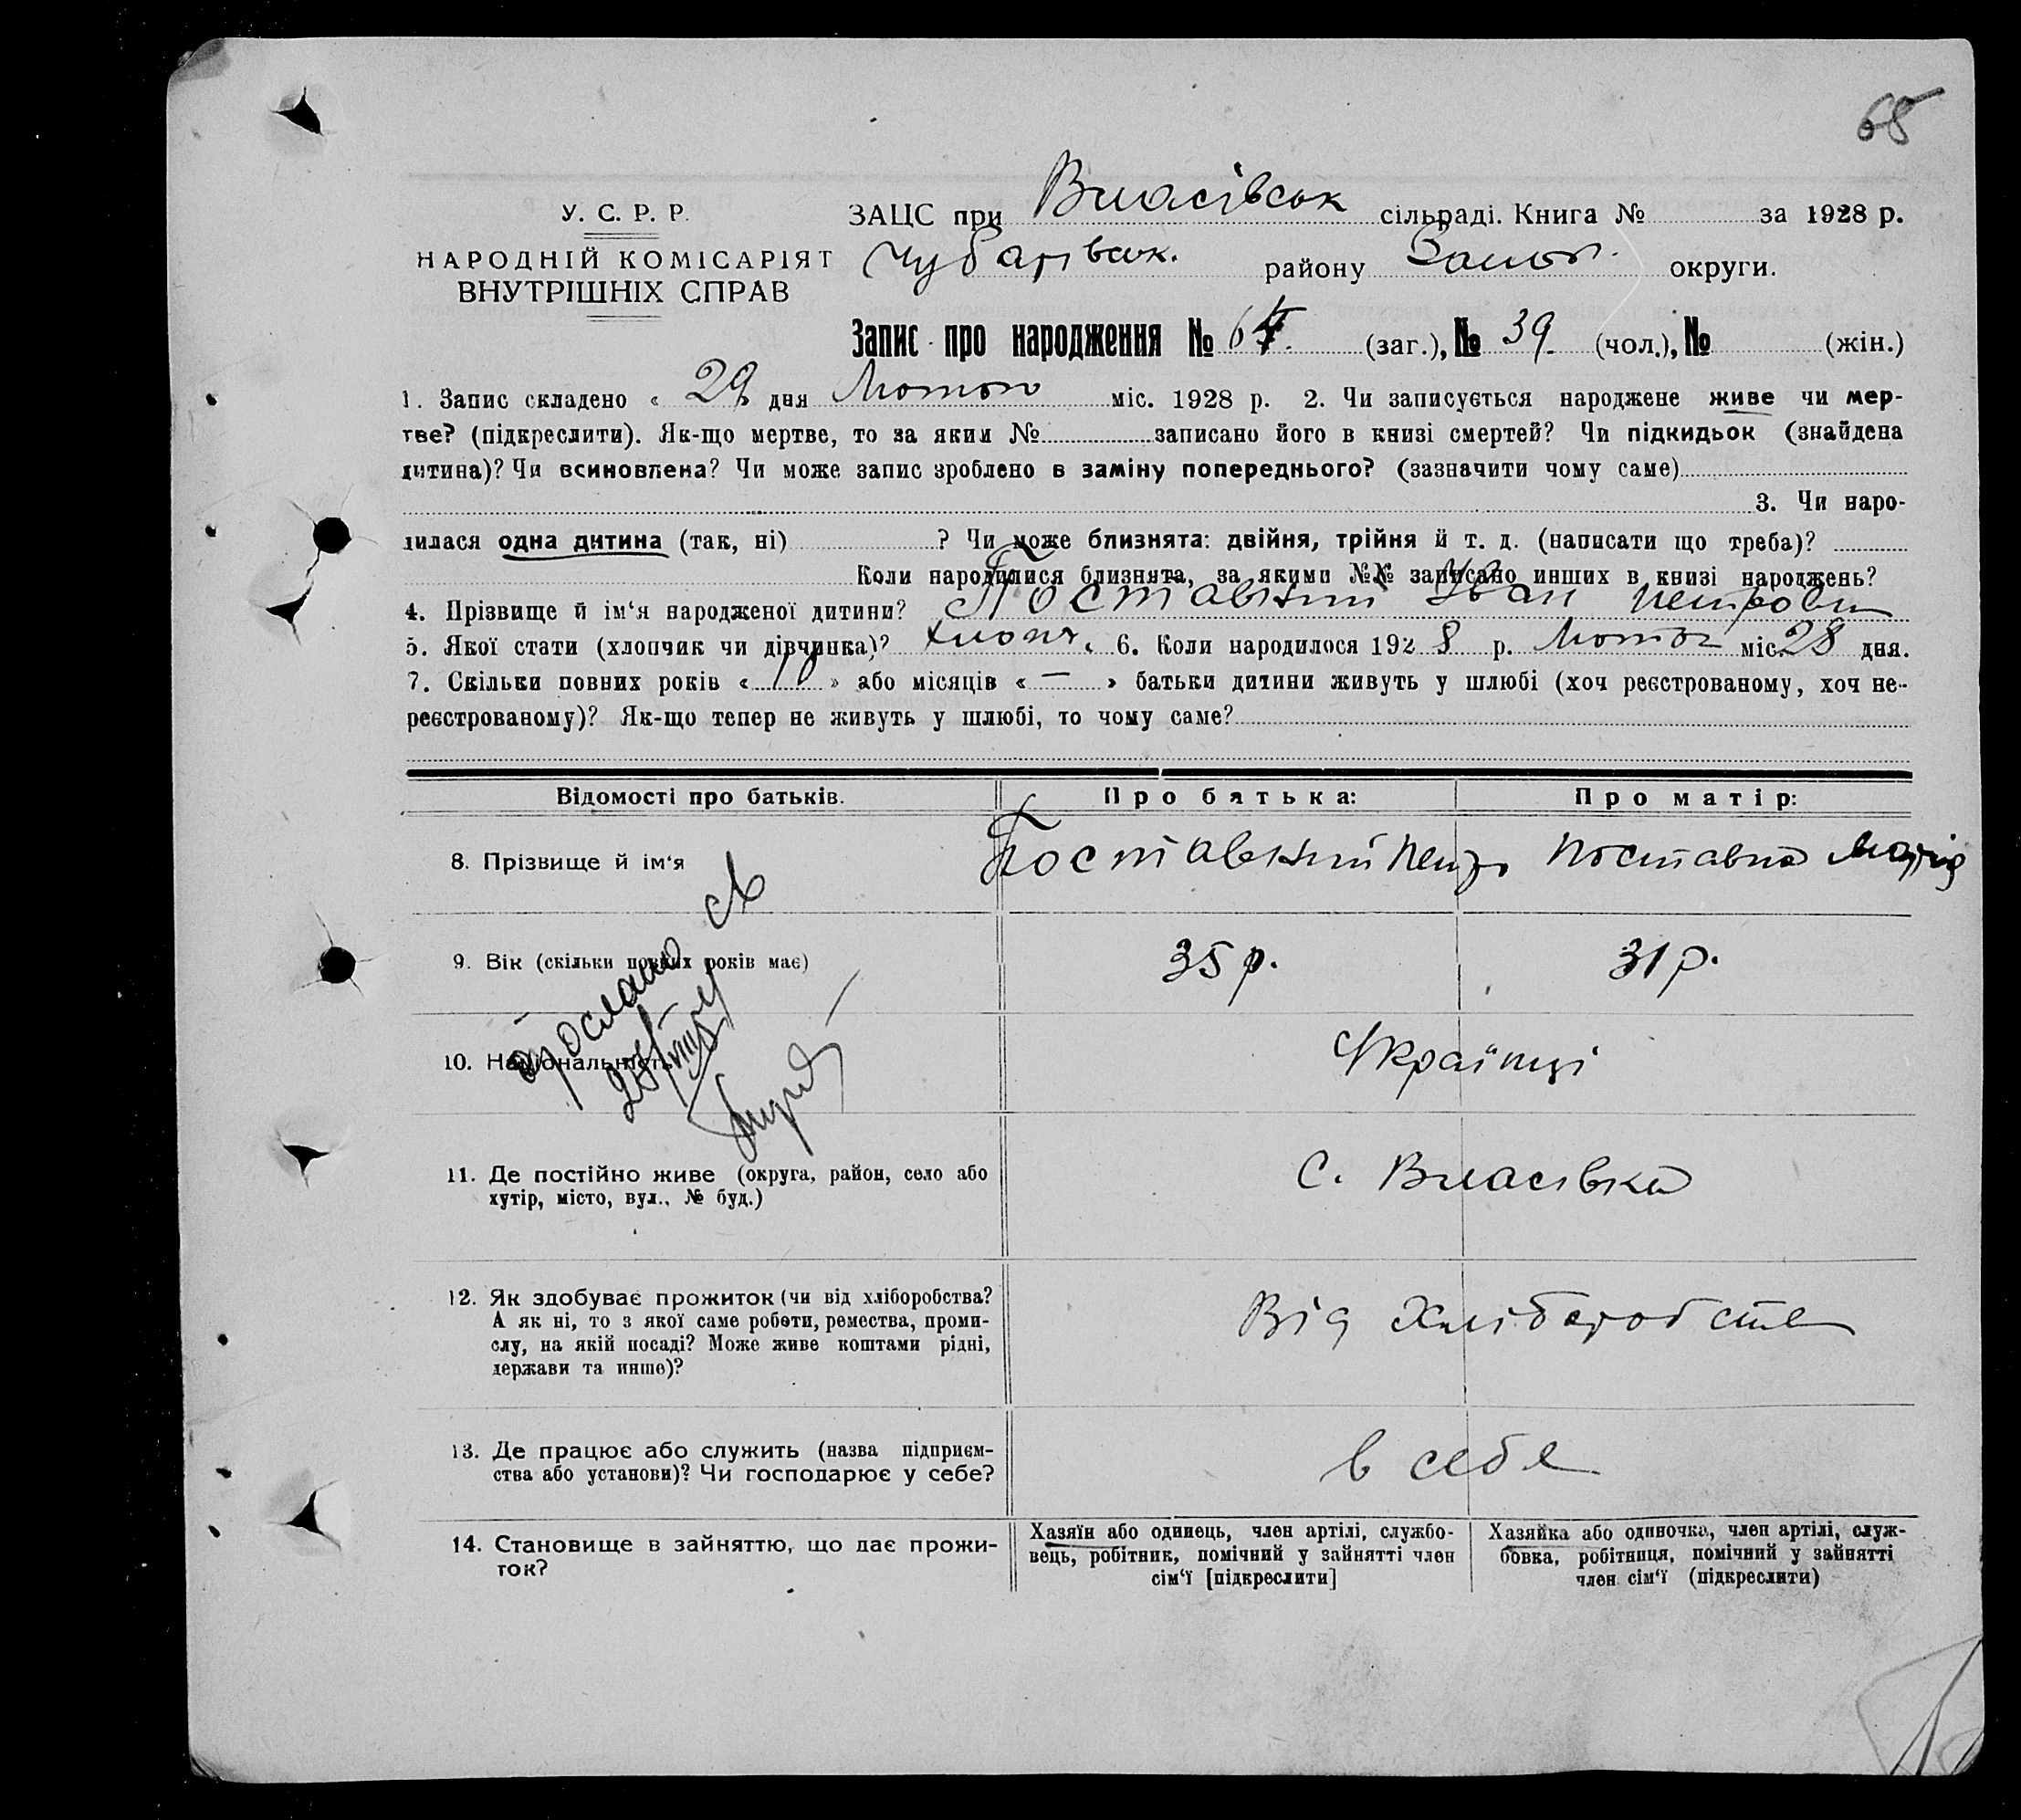 68
У. С. Р. Р.
НАРОДНІЙ КОМІСАРІЯТ
ВНУТРІШНІХ СПРАВ
ЗАЦС при Власівськ сільраді. Книга № за 1928 р.
Чубарівськ. району Запоr. округи.
Запис про народження № 64. (заг.), № 39. (чол.), № (жін.)
1. Запис складено « 29 » дня Лютого міс. 1928 р. 2. Чи записується народжене живе чи мер-
тве? (підкреслити). Як-що мертве, то за яким № записано його в книзі смертей? Чи підкидьок (знайдена
дитина)? Чи всиновлена? Чи може запис зроблено в заміну попереднього? (зазначити чому саме)
3. Чи наро-
дилася одна дитина (так, ні) ? Чи може близнята: двійня, трійня й т. д. (написати що треба)?
Коли народилися близнята, за якими №№ записано инших в книзі народжень?
4. Прізвище й ім‘я народженої дитини? Поставний Іван Петрович
5. Якої стати (хлопчик чи дівчинка)? хлопч. 6. Коли народилося 1928 р. Лютого міс. 28 дня.
7. Скільки повних років « 10 » або місяців « — » батьки дитини живуть у шлюбі (хоч реєстрованому, хоч не-
реєстрованому)? Як-що тепер не живуть у шлюбі, то чому саме?
Відомості про батьків. Про батька: Про матір:
8. Прізвище й ім‘я Поставний Петро Поставна Марія
9. Вік (скільки повних років має) 35 р. 31 р.
10. Національність Українці
11. Де постійно живе (округа, район, село або
хутір, місто, вул., № буд.) С. Власівка
12. Як здобуває прожиток (чи від хліборобства?
А як ні, то з якої саме роботи, ремества, проми-
слу, на якій посаді? Може живе коштами рідні,
держави та инше)? Від Хліборобств
13. Де працює або служить (назва підприєм-
ства або установи)? Чи господарює у себе? в себе
14. Становище в зайняттю, що дає прожи-
ток?
Хазяїн або одинець, член артілі, службо-
вець, робітник, помічний у зайнятті член
сім‘ї [підкреслити]
Хазяйка або одиночка, член артілі, служ-
бовка, робітниця, помічний у зайнятті
член сім‘ї (підкреслити)